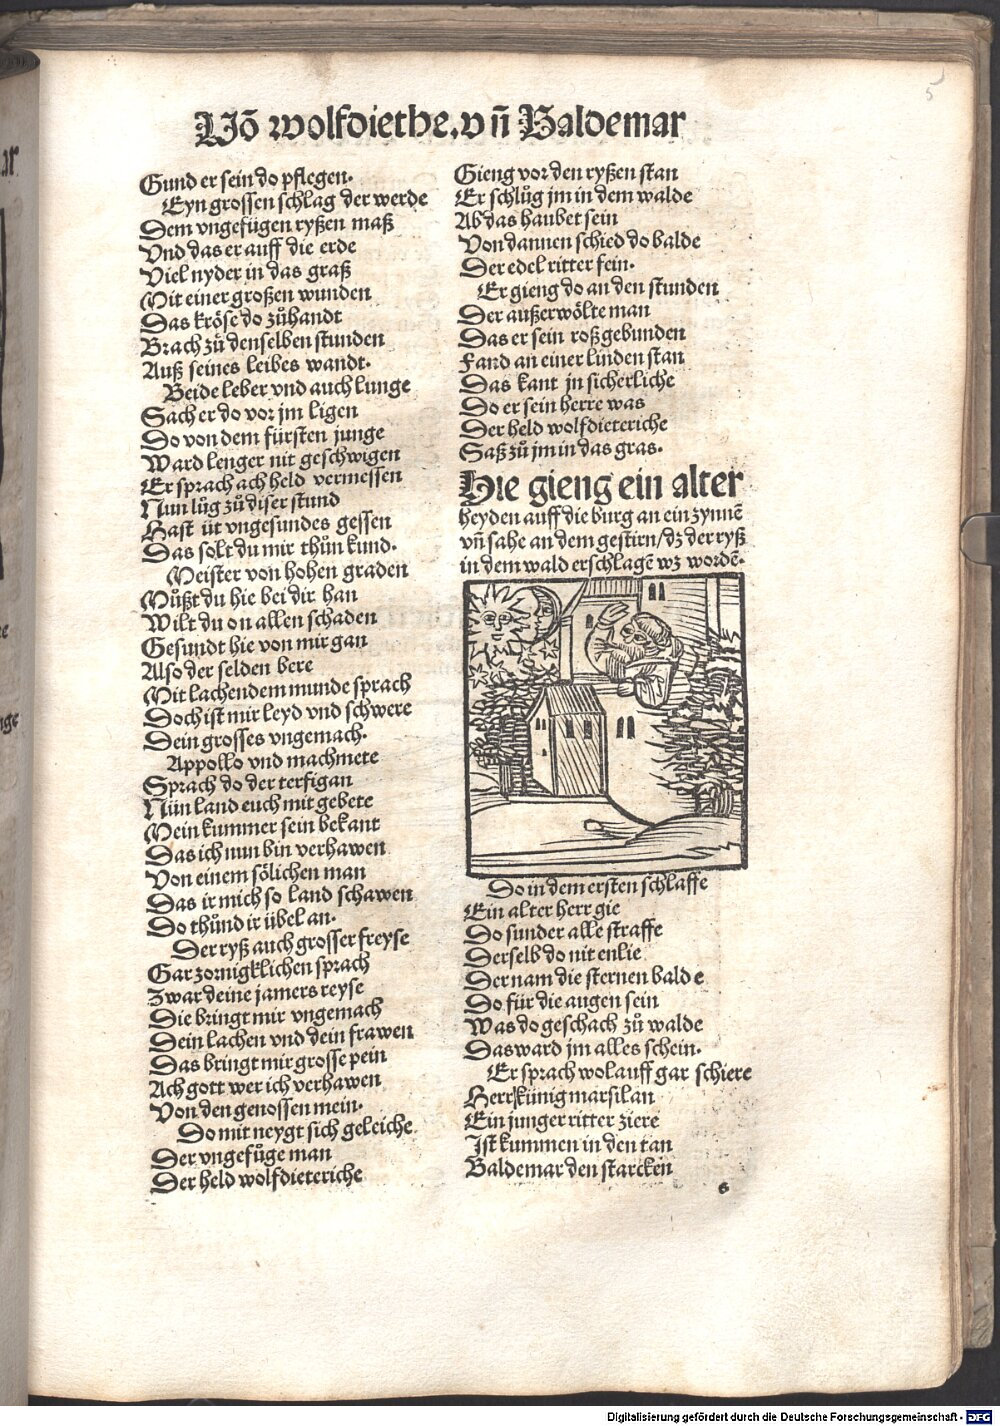 5
Uõ wolfdiethe. vñ Baldemar
Gund er sein do pflegen.
Eyn grossen schlag der werde
Dem vngefügen ryßen maß
Vnd das er auff die erde
Viel nyder in das graß
Mit einer großen wunden
Das kröse do zůhandt
Brach zů denselben stunden
Auß seines leibes wandt.
Beide leber vnd auch lunge
Sach er do vor jm ligen
Do von dem fürsten junge
Ward lenger nit geschwigen
Er sprach ach held vermessen
Nun lůg zů diser stund
Hast üt vngesundes gessen
Das solt du mir thůn kund.
Meister von hohen graden
Můßt du hie bei dir han
Wilt du on allen schaden
Gesundt hie von mir gan
Also der selden bere
Mit lachendem munde sprach
Doch ist mir leyd vnd schwere
Dein grosses vngemach.
Appollo vnd machmete
Sprach do der terfigan
Nün land euch mit gebete
Mein kummer sein bekant
Das ich nun bin verhawen
Von einem sölichen man
Das ir mich so land schawen
Do thůnd ir übel an.
Der ryß auch grosser freyse
Gar zornigklichen sprach
Zwar deine jamers reyse
Die bringt mir vngemach
Dein lachen vnd dein frawen
Das bringt mir grosse pein
Ach gott wer ich verhawen
Von den genossen mein.
Do mit neygt sich geleiche
Der vngefůge man
Der held wolfdieteriche
Gieng vor den ryßen stan
Er schlůg jm in dem walde
Ab das haubet sein
Von dannen schied do balde
Der edel ritter fein.
Er gieng do an den stunden
Der außerwölte man
Das er sein roß gebunden
Fand an einer linden stan
Das kant jn sicherliche
Do er sein herre was
Der held wolfdieteriche
Saß zů jm in das gras.
Hie gieng ein alter
heyden auff die burg an ein zynnē
vñ sahe an dem gestirn/dz der ryß
in dem wald erschlagē wz wordē.
Do in dem ersten schlaffe
Ein alter herr gie
Do sunder alle straffe
Derselb do nit enlie
Der nam die sternen balde
Do für die augen sein
Was do geschach zů walde
Das ward jm alles schein.
Er sprach wolauff gar schiere
Herr künig marsilan
Ein junger ritter ziere
Ist kummen in den tan
Baldemar den starcken
Digitalisierung gefördert durch die Deutsche Forschungsgemeinschaft - DFG